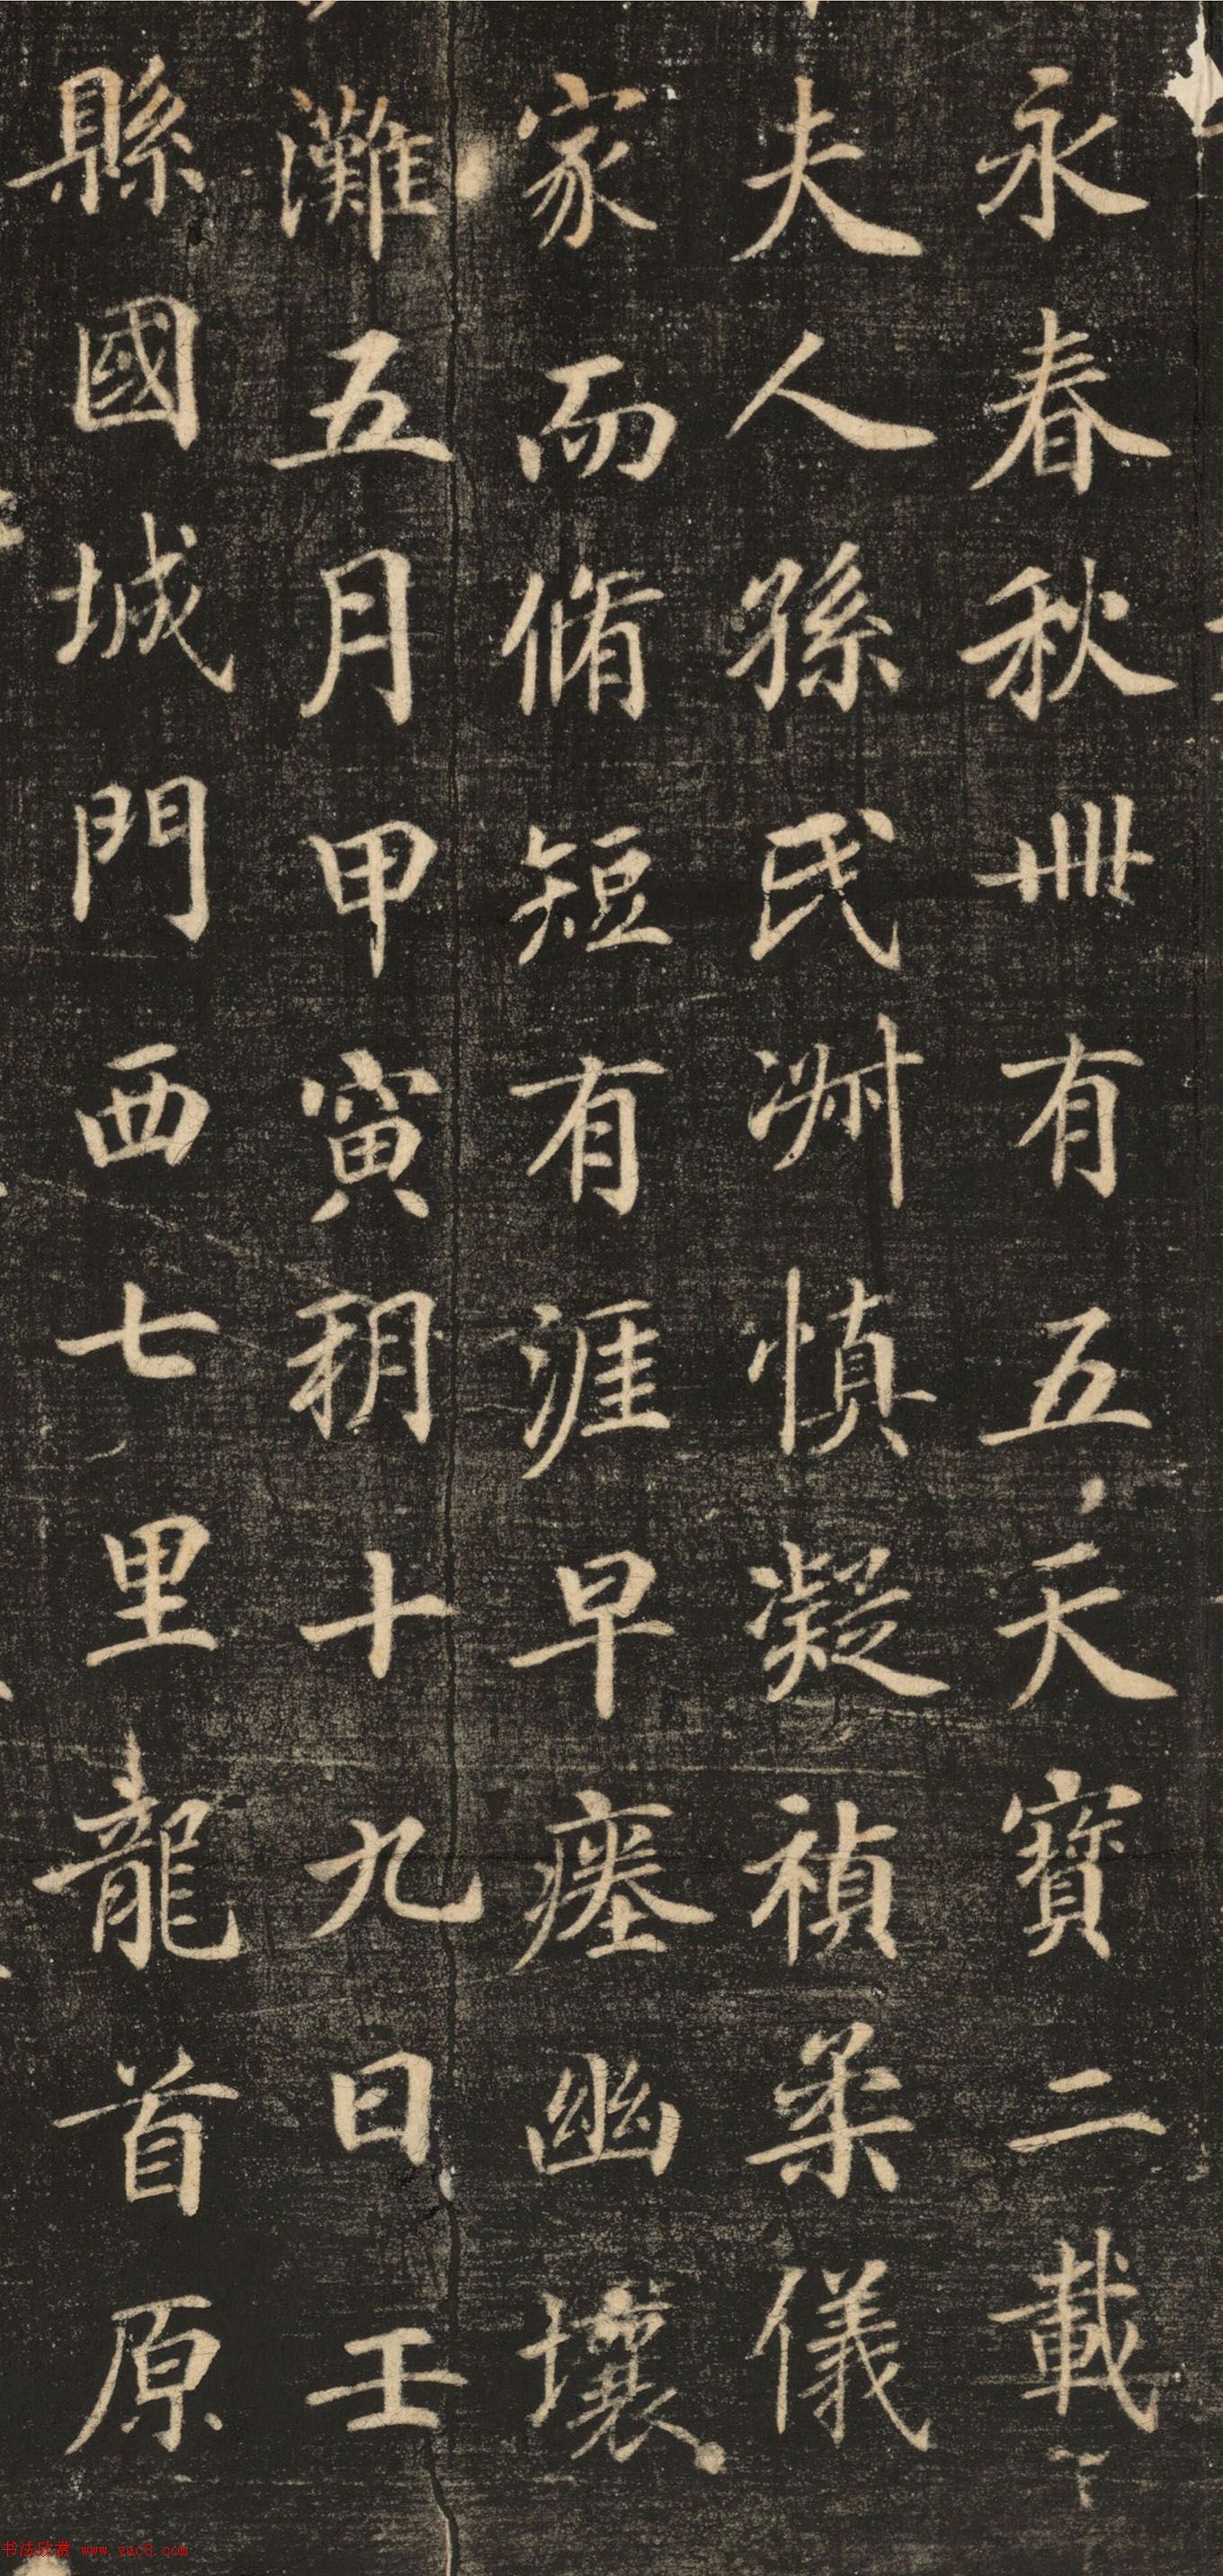 永春秋卌有五天寶二載
夫人孫氏淑慎凝禎柔儀
家而脩短有涯早瘞幽壤
灘五月甲寅朔十九日壬
縣國城門西七里龍首原
书法欣赏 www.yac8.com